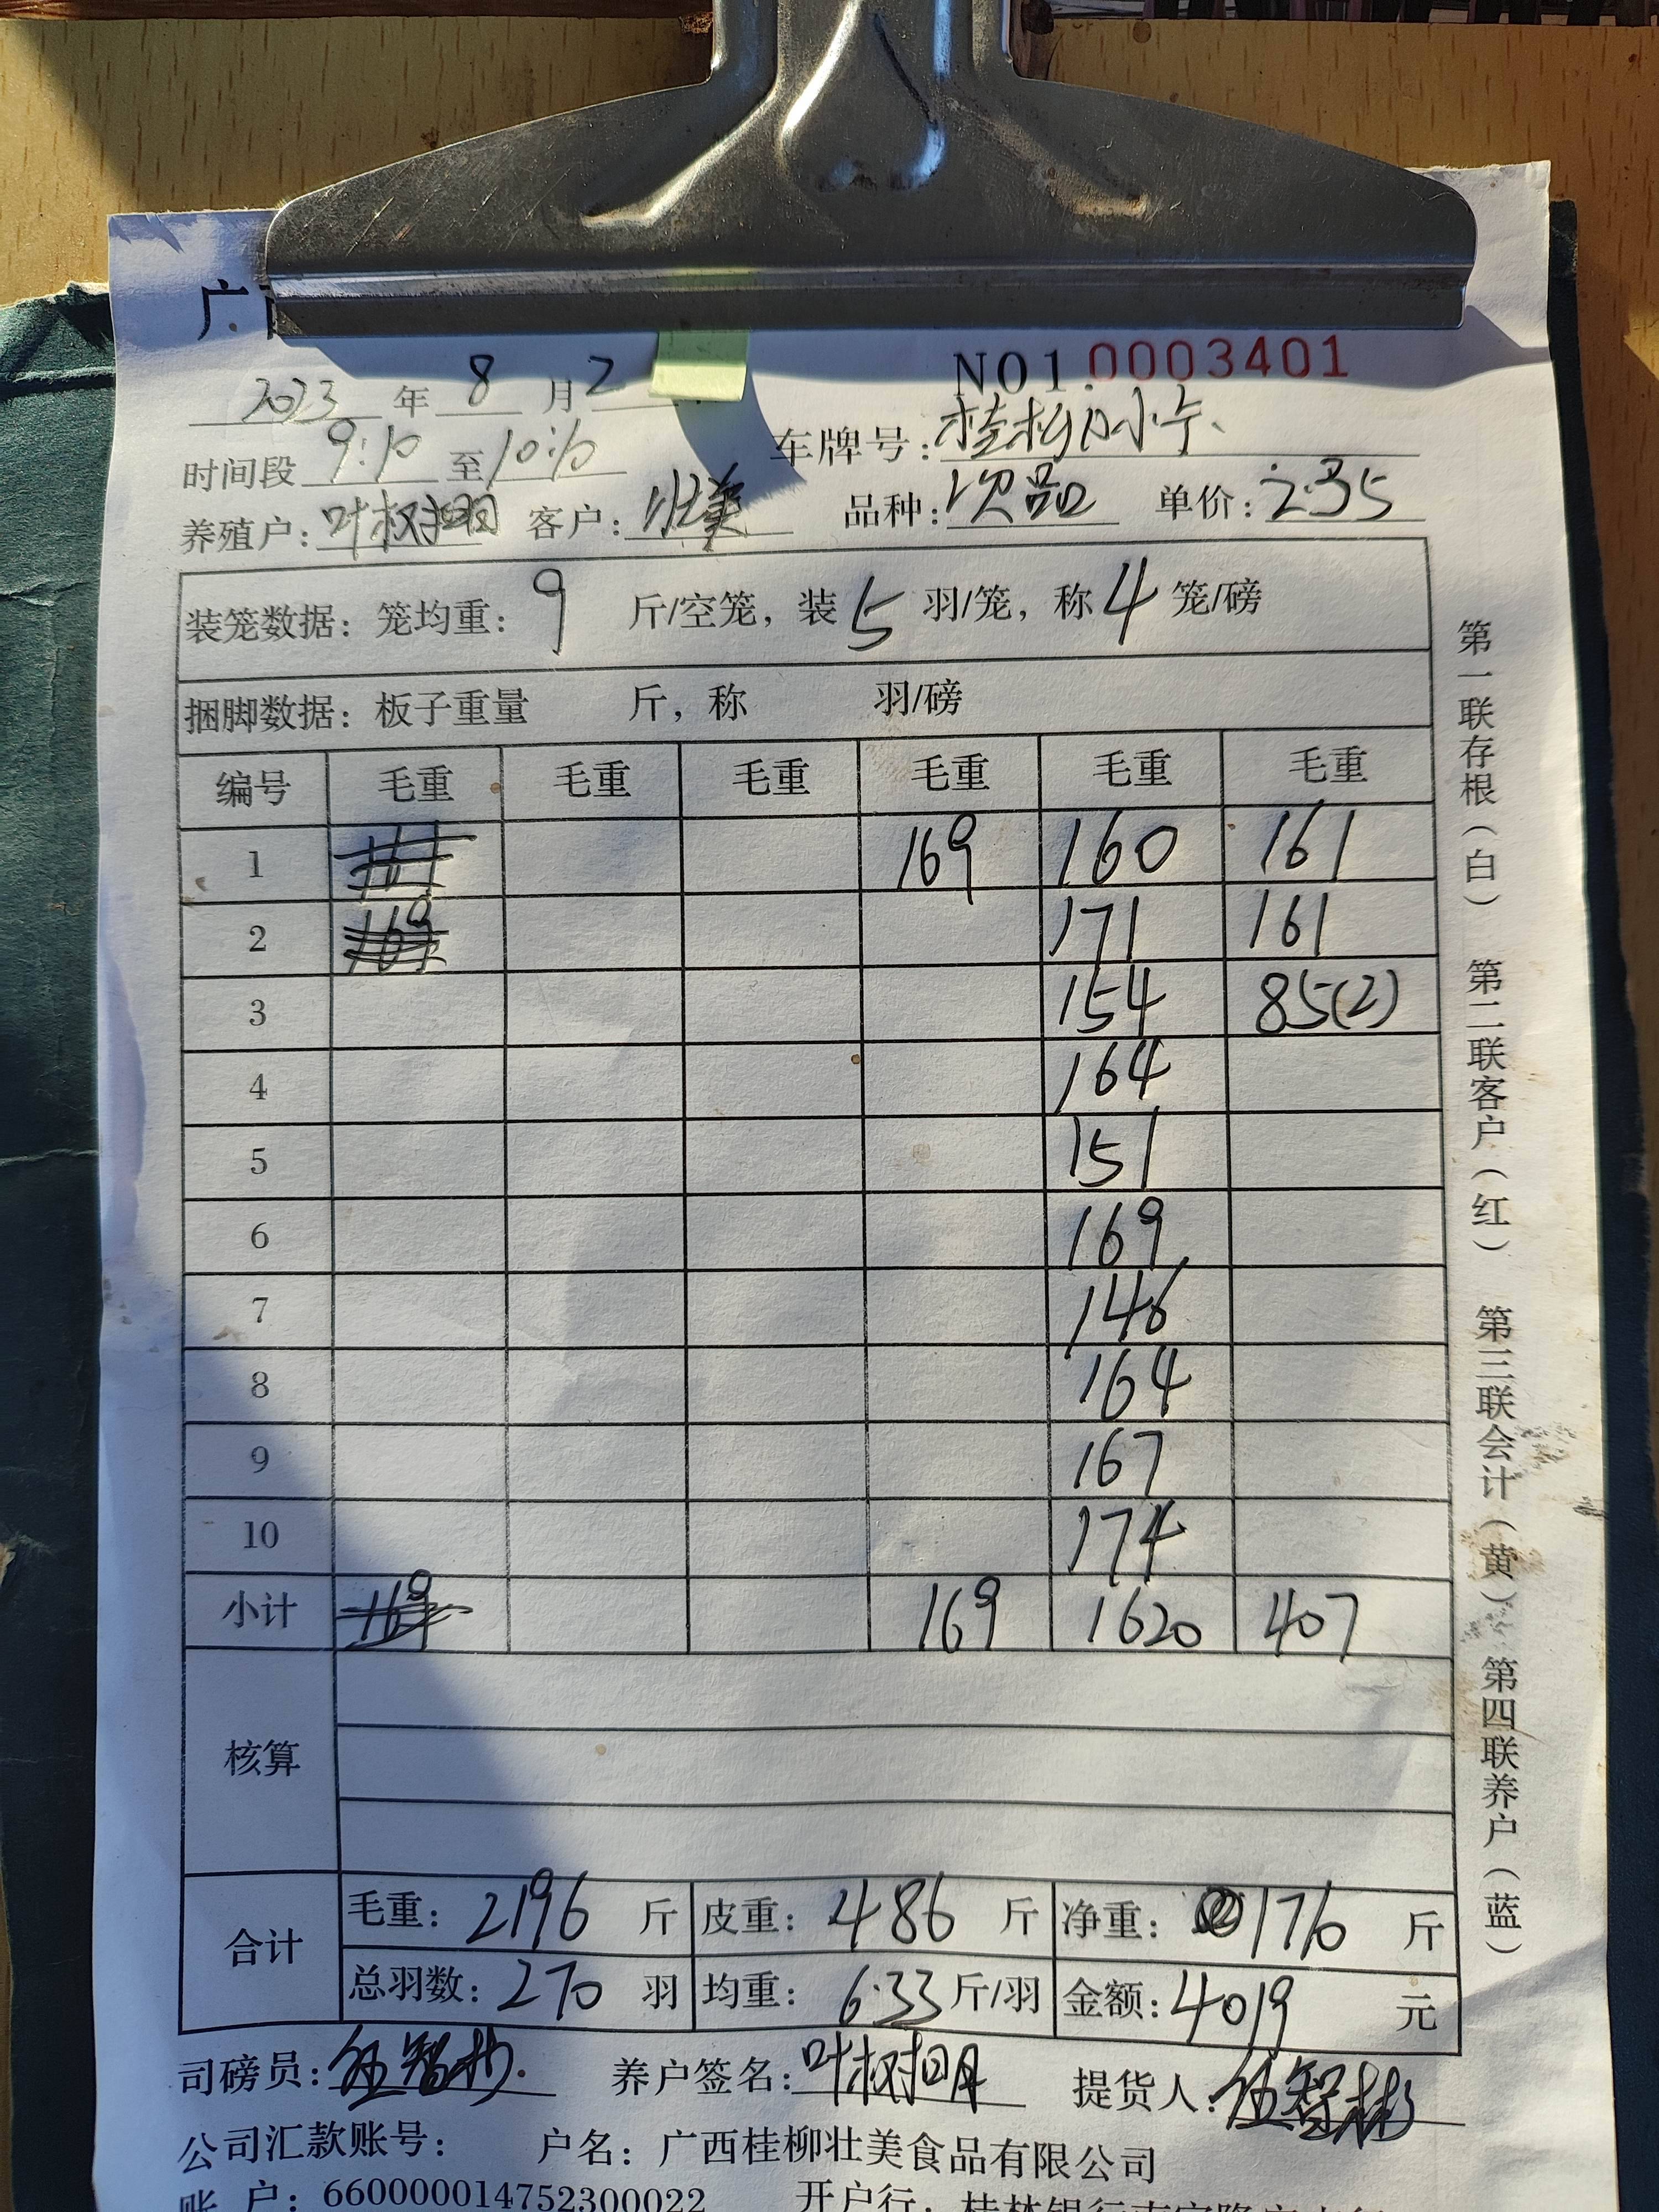 广
NO1.0003401
2023 年 8 月 2
时间段 9:10 至 10:10 车牌号:桂柳 小宁
养殖户: 叶树明 客户: 壮美 品种: 次品 单价: 2.35
装笼数据: 笼均重: 9 斤/空笼, 装 5 羽/笼, 称 4 笼/磅
捆脚数据: 板子重量 斤, 称 羽/磅
编号 毛重 毛重 毛重 毛重 毛重 毛重
1 161 169 160 161
2 169 171 161
3 154 85(2)
4 164
5 151
6 169
7 146
8 164
9 167
10 174
小计 169 169 1620 407
核算
合计 毛重: 2196 斤 皮重: 486 斤 净重: 1710 斤
总羽数: 270 羽 均重: 6.33 斤/羽 金额: 4019 元
司磅员: 伍智彬 养户签名: 叶树明 提货人: 伍智彬
公司汇款账号: 户名: 广西桂柳壮美食品有限公司
账 户: 660000014752300022 开户行:
第一联存根(白) 第二联客户(红) 第三联会计(黄) 第四联养户(蓝)